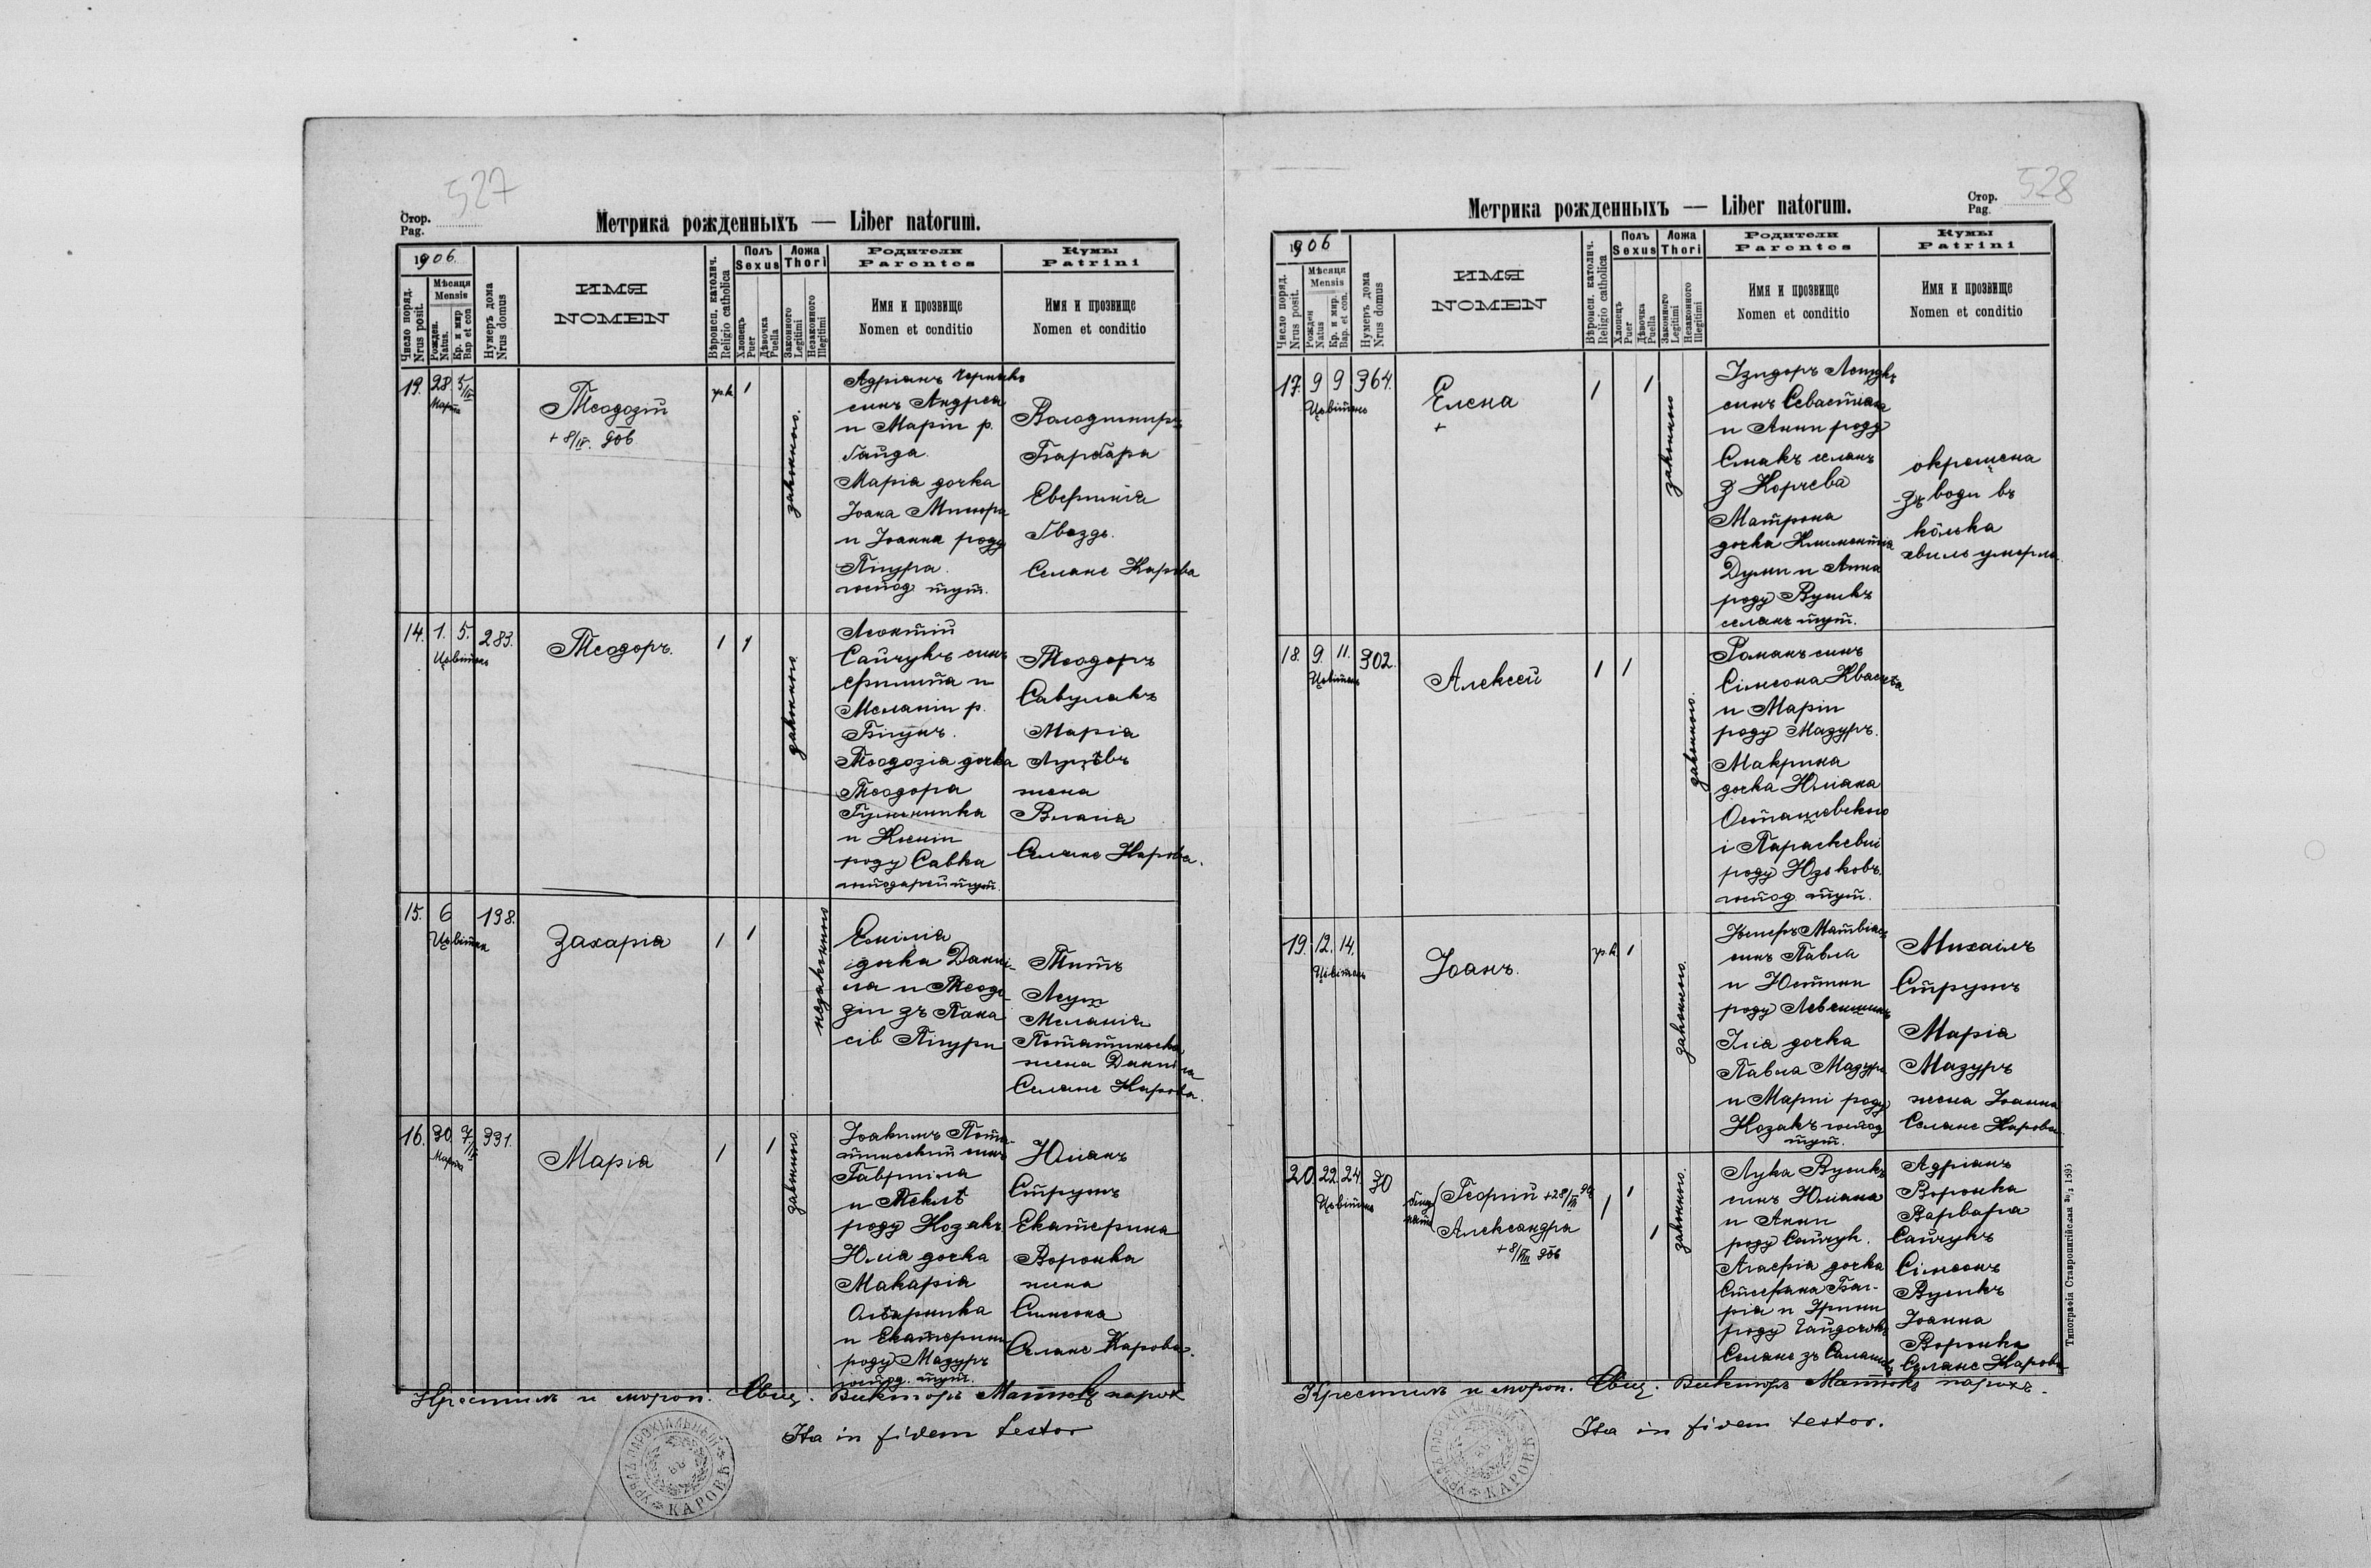 527
Стор.
Pag.
Метрика рожденныхъ — Liber natorum.
1906.
Число поряд.
Nrus posit.
Мѣсяця
Mensis
Рожден.
Natus
Кр. и мир
Bap et con
Нумеръ дома
Nrus domus
ИМЯ
NOMEN
Вѣроисп. католич.
Religio catholica
Полъ
Sexus
Хлопецъ
Puer
Дѣвочка
Puella
Ложа
Thori
Законного
Legitimi
Незаконного
Illegitimi
Родители
Parentes
Имя и прозвище
Nomen et conditio
Кумы
Patrini
Имя и прозвище
Nomen et conditio
19. 28. 5/IV
Марта
Теодозій
+ 8/IV. 906
гр.к. 1
законного.
Адріанъ
синъ Андрея
и Маріи р.
Гайда.
Марія дочка
Іоана
и Іоанна роду
Пігура.
господ. тут.
Володимиръ
Барбара
Евфимія
Гвоздь.
Селяне Карова
14. 1. 5. 283.
Цьвітень
Теодоръ.
1 1
законного
Леонтій
Сайчукъ синъ
Филипа и
Меланіи р.
Бігунъ.
Теодозія дочка
Теодора
и Ксеніи
роду Савка
господареи тут.
Теодоръ
Савулакъ
Марія
жена
Власія
Селяне Карова.
15. 6 198.
Цьвітня
Захарія
1 1
незаконного
Емілія
дочка Дани-
ла и Теодо-
зіи зъ Пана
сів Пігури
Титъ
Меланія
жена Данила
Селяне Карова.
16. 30. 7/IV 331.
Марта
Марія
1 1
законного.
Іоакимъ Пота-
тинскій синъ
Гавриіла
и Теклѣ
роду Козакъ.
Юлія дочка
Макарія
и Екатерини
роду Мазуръ
господ. тут.
Юліанъ
Струтъ
Екатерина
Воронка
жена
Симеона
Селяне Карова.
Крестилъ и мыроп. Свящ. Викторъ Матюкъ парох
Ita in fidem testor
КАРОВѢ
528
Стор.
Pag.
Метрика рожденныхъ — Liber natorum.
1906
Число поряд.
Nrus posit.
Мѣсяця
Mensis
Рожден
Natus
Кр. и мир.
Bap. et con.
Нумеръ дома
Nrus domus
ИМЯ
NOMEN
Вѣроисп. католич.
Religio catholica
Полъ
Sexus
Хлопецъ
Puer
Дѣвочка
Puella
Ложа
Thori
Законного
Legitimi
Незаконного
Illegitimi
Родители
Parentes
Имя и прозвище
Nomen et conditio
Кумы
Patrini
Имя и прозвище
Nomen et conditio
17. 9 9 364.
Цьвітень
Елена
+
1 1
законного
Ізидоръ
синъ Севастіяна
и Анни роду
Смакъ селянъ
з Корчева
Матрона
дочка Климентія
Думи и Анна
роду Вуликъ
селянъ тут.
окрещена
зъ води въ
кôлька
хвиль умерла.
18. 9. 11. 302.
Цьвітень
Алексей
1 1
законного.
Романъ синъ
Сімеона Квасъ
и Маріи
роду Мазуръ.
Макрина
дочка Юліана
Осташевского
і Параскевіи
роду Юзьковъ.
господ. тут.
19. 12. 14.
Цьвітень
Іоанъ.
гр.к. 1
законного.
синъ Павла
и Юстини
роду
Юлія дочка
Павла Мазура
и Маріи роду
Козакъ господ
тут.
Михаілъ
Струтъ
Марія
Мазуръ
жена Іоанна
Селяне Карова
20. 22. 24. 30
Цьвітень
близ
нята
Георгій +28/VII 906
Александра
+ 8/VIII 906
1 1
1
законного.
Лука Вуликъ
синъ Юліана
и Анни
роду Сайчук.
Агафія дочка
Стефана Баг-
рія и Ірини
роду
Селяне зъ
Адріанъ
Воронка
Варвара
Сайчукъ
Сімеонъ
Вуликъ
Іоанна
Воронка
Селяне Карова
Крестилъ и мыроп. Свящ. Викторъ Матюкъ парохъ.
Ita in fidem testor.
КАРОВѢ
Типографія Ставропигійская